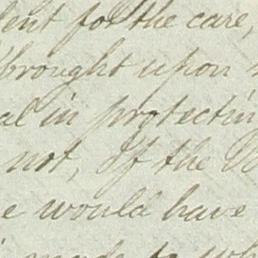 for the care,
brought upon
in protectin
not, If the
would have
made to